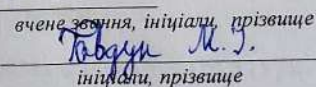 вчене звання, ініціали, прізвище
М. І.
ініціали, прізвище